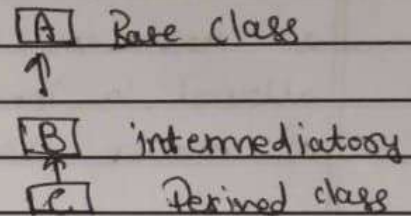 A Base class
B intermediatory
C Derived class